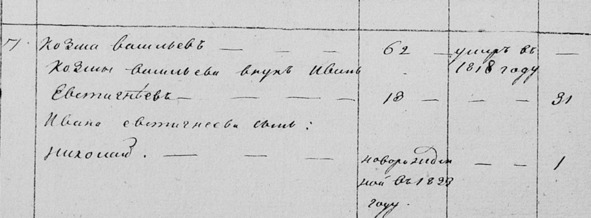 7. Козма васильевъ — — — 62 — умръ въ 1818 году —
Козмы васильева внукъ Иванъ
Евстигнѣевъ — — — 13 — — — 31
Ивана евстигнеева сынъ:
Николай. — — — новорожден — — 1
ной въ 1833
году.